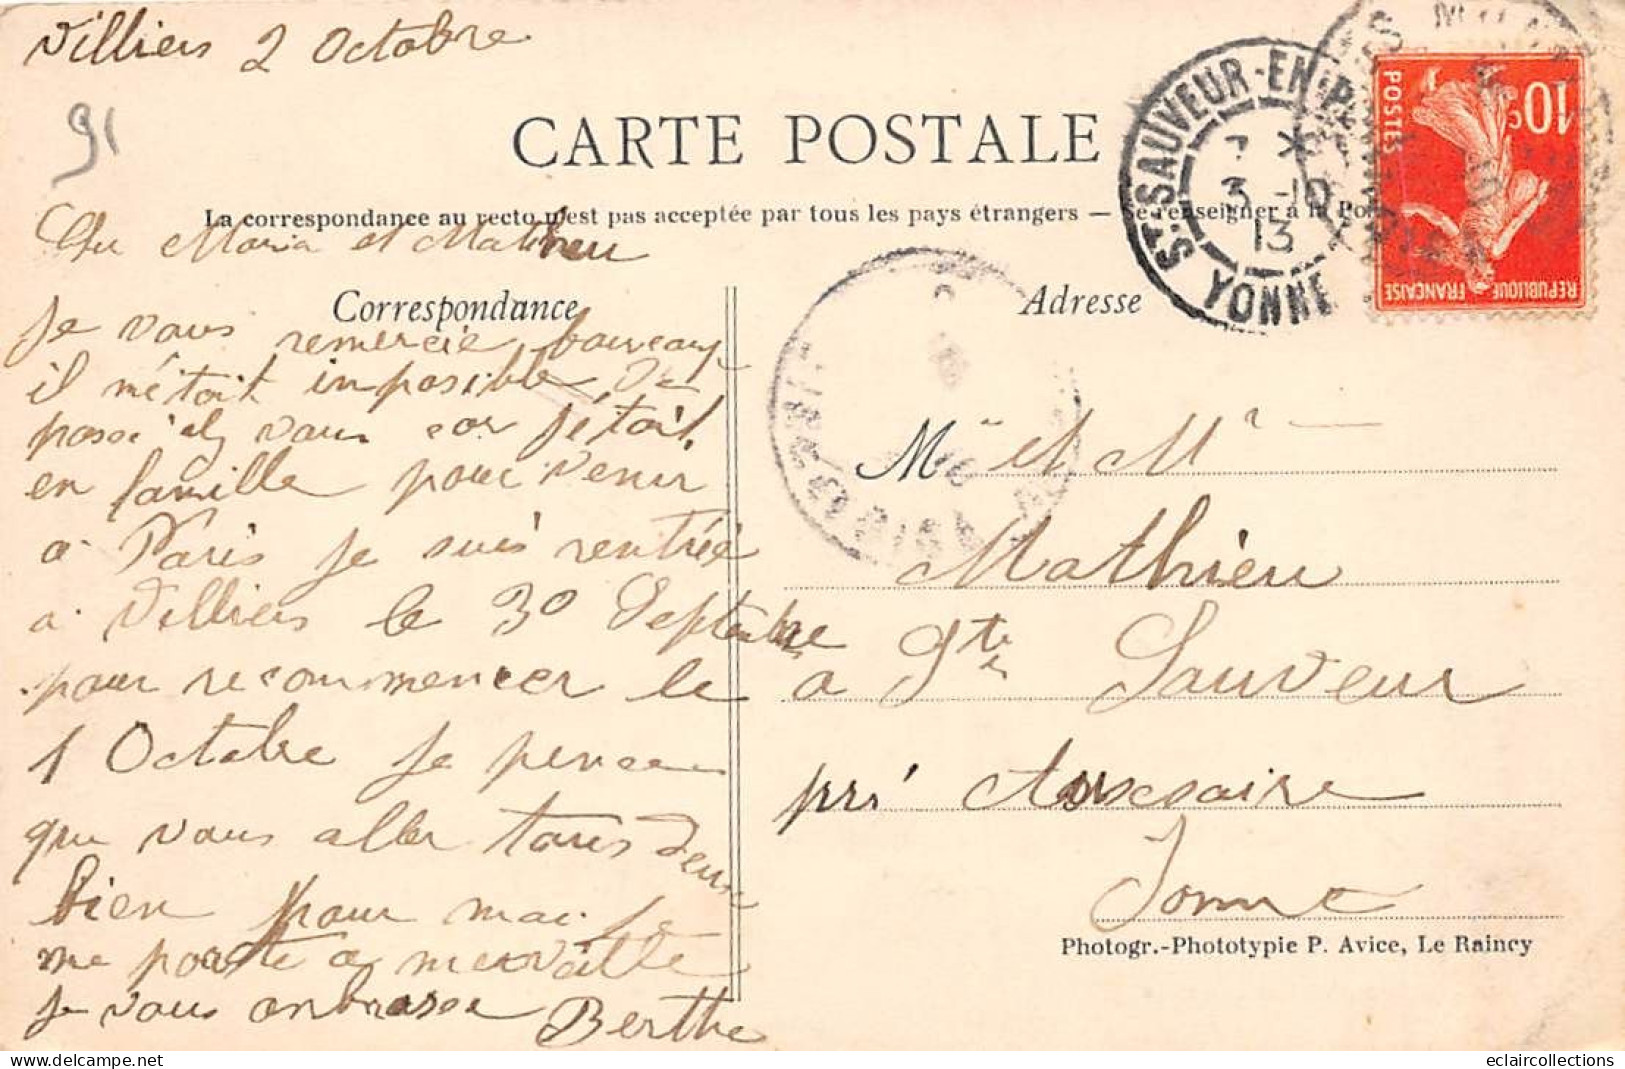 Villiers 2 Octobre
91
CARTE POSTALE
La correspondance au recto n'est pas acceptée par tous les pays étrangers — Se renseigner à la
Cher Maria et Mathieu
Correspondance
Adresse
je vous remercie baucaup
il m'étoit inposible de
passé vous car j'étail
en famille pour venir
a Paris je suis rentrée
a Villiers le 30 Septembre
pour recommencer le
1 Octobre je pense
que vous aller tous deux
bien pour moi je
me porte a merveille
je vous anbrasse Berthe
ST-SAUVEUR-EN-P
7 *
3 -10
13
YONNE
10c
POSTES
REPUBLIQUE FRANÇAISE
Me et Mr
Mathieu
a Ste Sauveur
pré
Yonne
Photogr.-Phototypie P. Avice, Le Raincy
eclaircollections